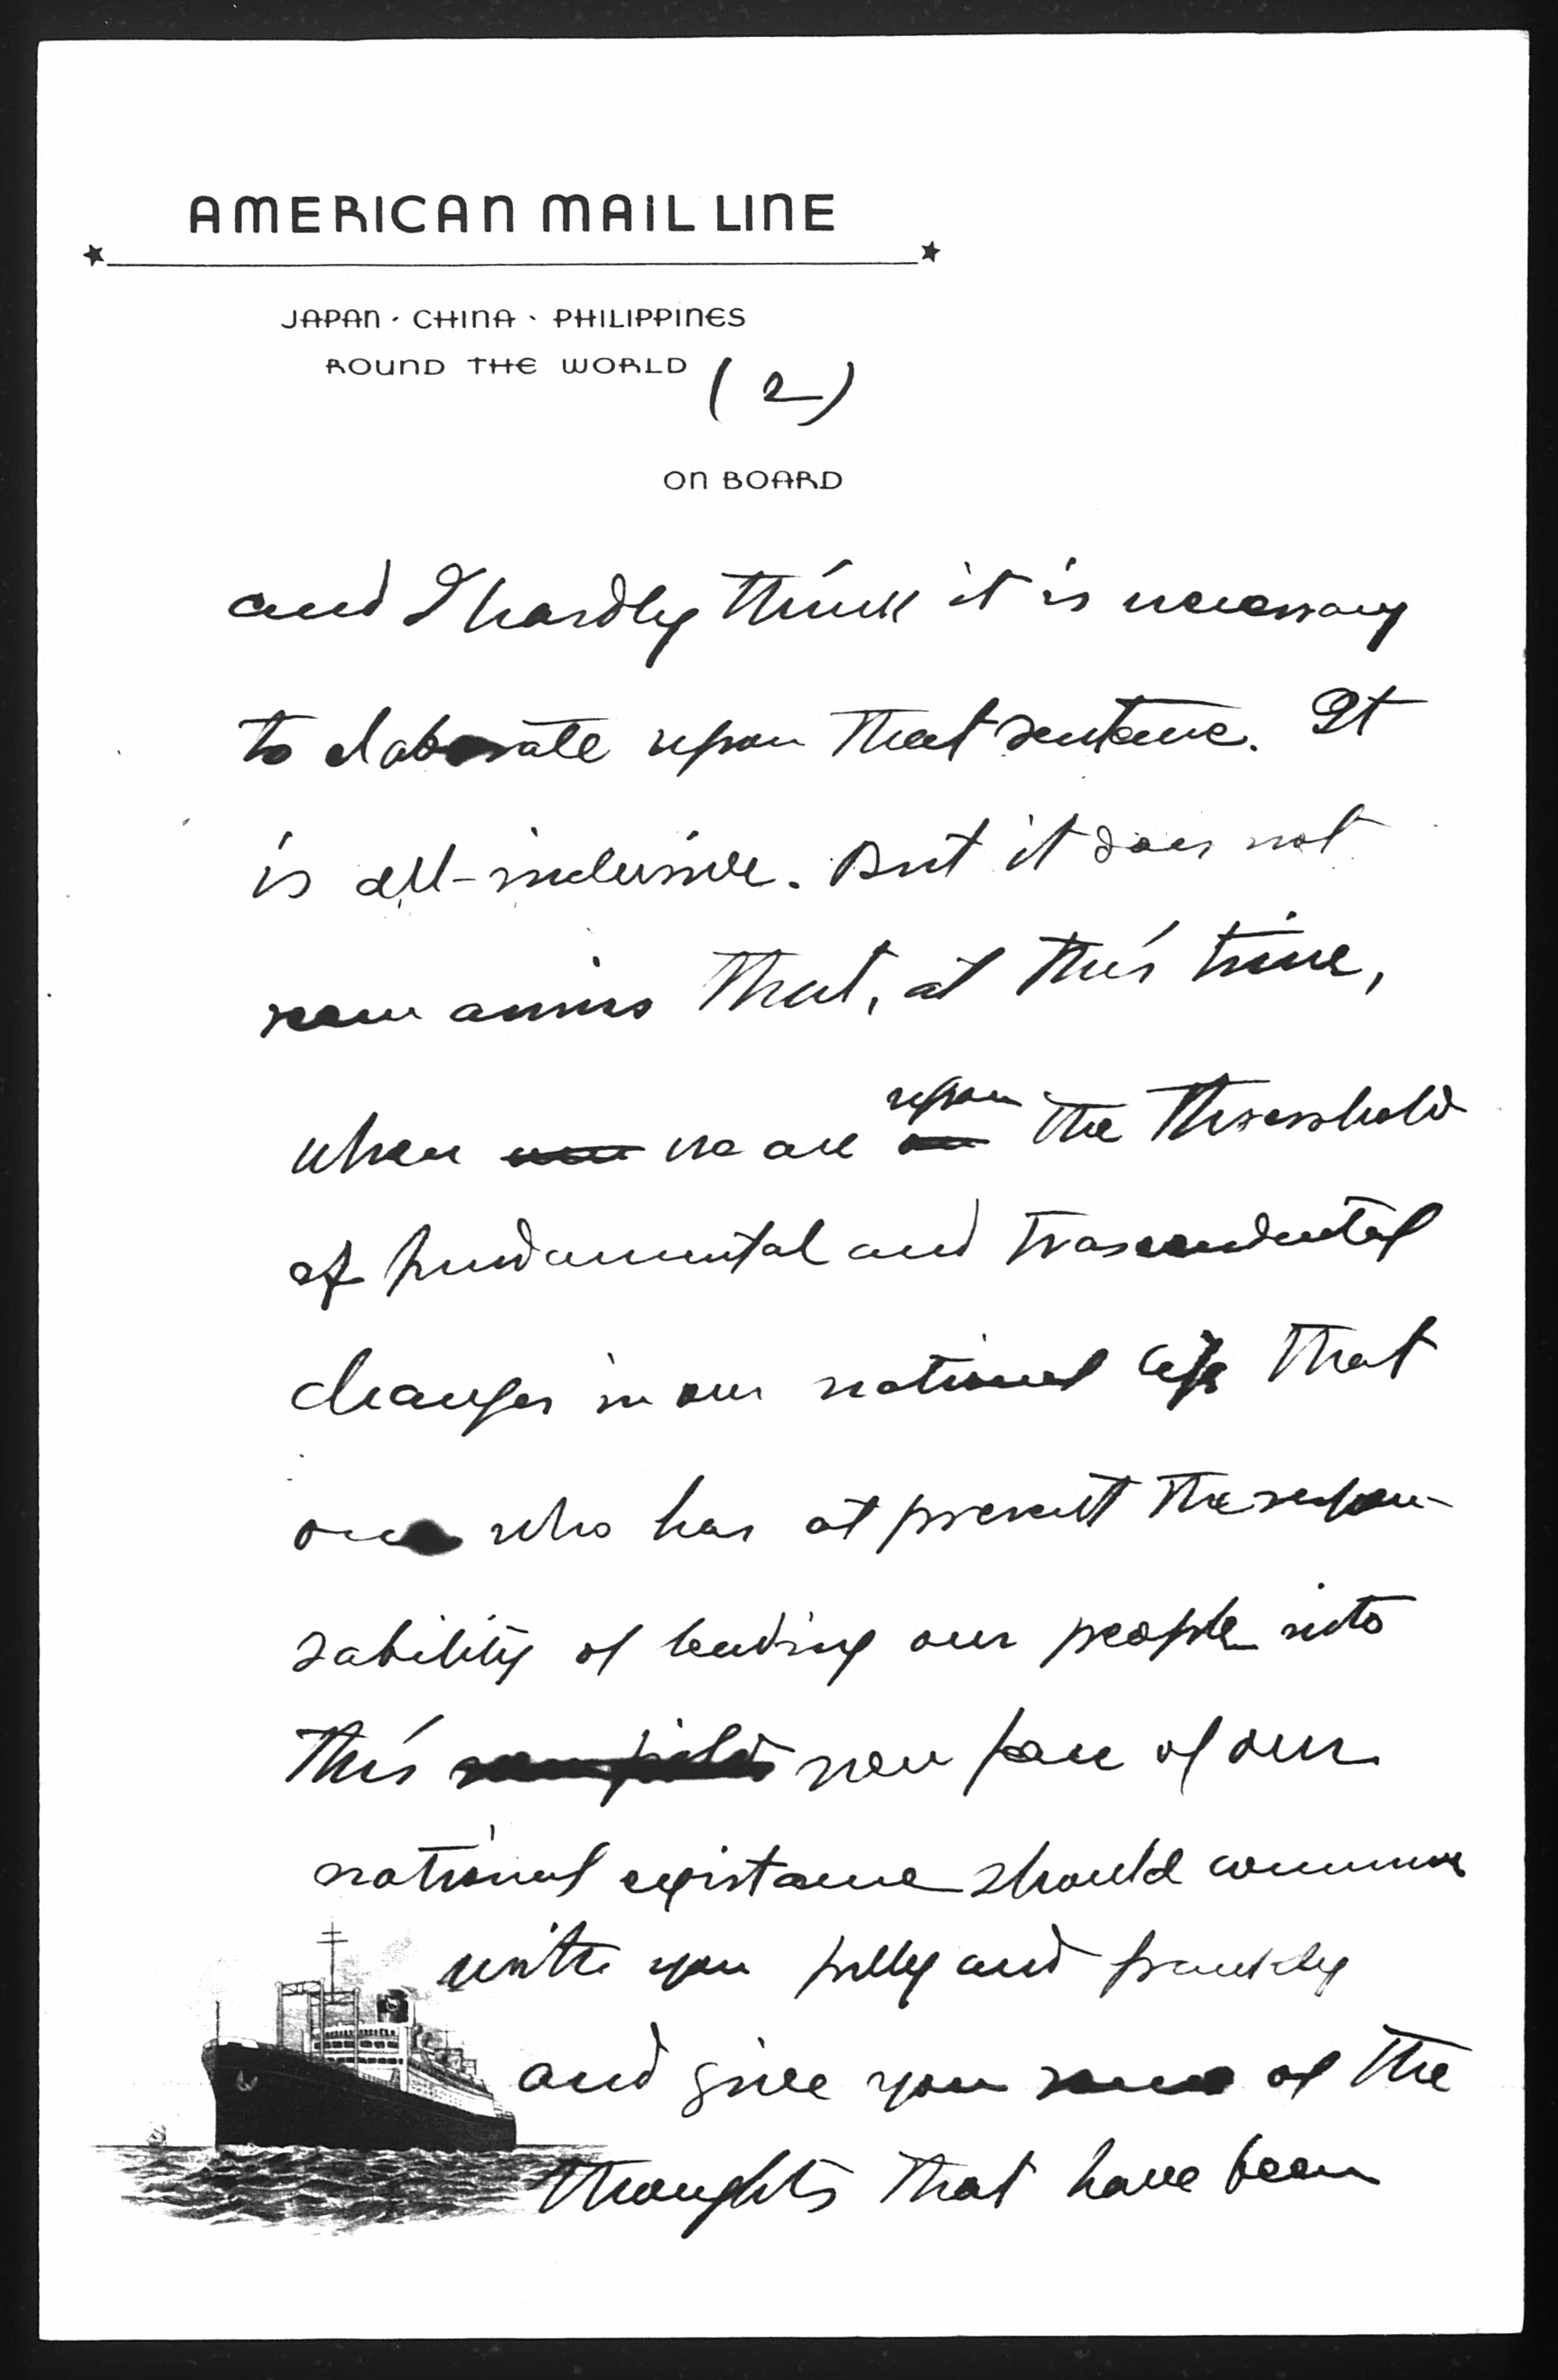 AMERICAN MAIL LINE
JAPAN · CHINA · PHILIPPINES
ROUND THE WORLD (2)
ON BOARD
and I hardly think it is necessary
to elaborate upon that sentence. It
is all-inclusive. But it does not
seem amiss that, at this time,
when we are upon the threshold
of fundamental and trascendental
changes in our national life that
one who has at present the respon-
sability of leading our people into
this new face of our
national existance should commun
with you fully and frankly
and give you some of the
thoughts that have been